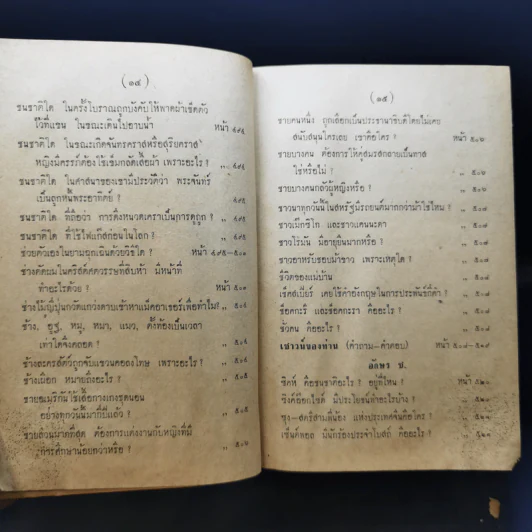 (๑๔)
ชนชาติใด ในครั้งโบราณถูกบังคับให้พาดผ้าเช็ดตัว
ไว้ที่แขน ในขณะเดินไปอาบน้ำ หน้า ๔๙๕
ชนชาติใด ในขณะเกิดจันทรคราสหรือสุริยคราส
หญิงมีครรภ์ต้องใช้เข็มกลัดเสื้อผ้า เพราะอะไร ? ,, ๔๙๕
ชนชาติใด ในศาสนาของเขามีประวัติว่า พระจันทร์
เป็นลูกหนี้พระอาทิตย์ ? ,, ๔๙๕
ชนชาติใด ที่ถือว่า การดึงหนวดเคราเป็นการดูถูก ? ,, ๔๙๕
ชนชาติใด ที่ใช้ไพ่แก่สก่อนในโลก ? ,, ๔๙๕
ช่วยตัวเองในยามฉุกเฉินด้วยวิธีใด ? หน้า ๔๙๕—๕๐๓
ช่างตัดผมในคริสต์ศตวรรษที่สิบห้า มีหน้าที่
ทำอะไรด้วย ? หน้า ๕๐๓
ช่างไม้ญี่ปุ่นกวัดแกว่งดาบเข้าหาแม็คอาเธอร์เพื่อทำไม? ,,
ช้าง, อูฐ, หมู, หมา, แมว, ตั้งท้องเป็นเวลา
เท่าใดจึงคลอด ? ,,
ช้างละครสัตว์ถูกจับแขวนคอลงโทษ เพราะอะไร ? ,,
ช้างเผือก หมายถึงอะไร ? ,,
ชายอเมริกันใช้เสื้อกางเกงชุดนอน
อย่างทุกวันนี้มากี่ปีแล้ว ? ,,
ชายส่วนมากที่สุด ต้องการแต่งงานกับหญิงที่มี
การศึกษาน้อยกว่าหรือ ? ,,
(๑๕)
ชายคนหนึ่ง ถูกเลือกเป็นประธานาธิบดีโดยไม่เคย
สนับสนุนใครเลย เขาคือใคร ? หน้า ๕๐๖
ชายบางคน ต้องการให้คู่สมรสกลายเป็นทาส
ใช่หรือไม่ ? ,, ๕๐๖
ชายบางคนกลัวผู้หญิงหรือ ? ,, ๕๐๖
ชาวนาทุกวันนี้ในสหรัฐมีรถยนต์มากกว่าม้าใช่ไหม ? ,, ๕๐๗
ชาวเม็กซิโก และชาวแคนนะดา ,, ๕๐๗
ชาวโรมัน มีอายุยืนมากหรือ ? ,, ๕๐๗
ชาวอาหรับชอบม้าขาว เพราะเหตุใด ? ,, ๕๐๗
ชีวิตของแม่บ้าน ,, ๕๐๗
เช็คสเปียร์ เคยใช้คำอังกฤษในการประพันธ์กี่คำ ? ,,
ช็อคกะริ และช็อคกะรา คืออะไร ? ,,
ชัวคน คืออะไร ? ,,
เชาวน์ของท่าน (คำถาม—คำตอบ) หน้า
อักษร ซ.
ซิคห์ คือชนชาติอะไร ? อยู่ที่ไหน ? หน้า
ซิงค์อ๊อกไซด์ มีประโยชน์ทำอะไรบ้าง ? ,,
ซุง—สตรีสามพี่น้อง แห่งประเทศจีนคือใคร ? ,,
เซ็นต์พอล มีนักร้องประจำโบสถ์ คืออะไร ? ,,